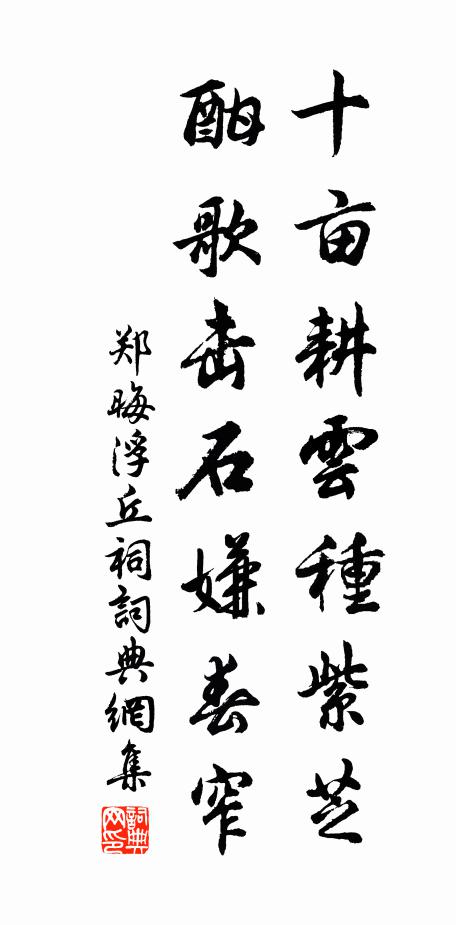 十亩耕雲種紫芝
酣歌击石嫌春窄
郑晦浮丘祠詞典網集
詞典网印